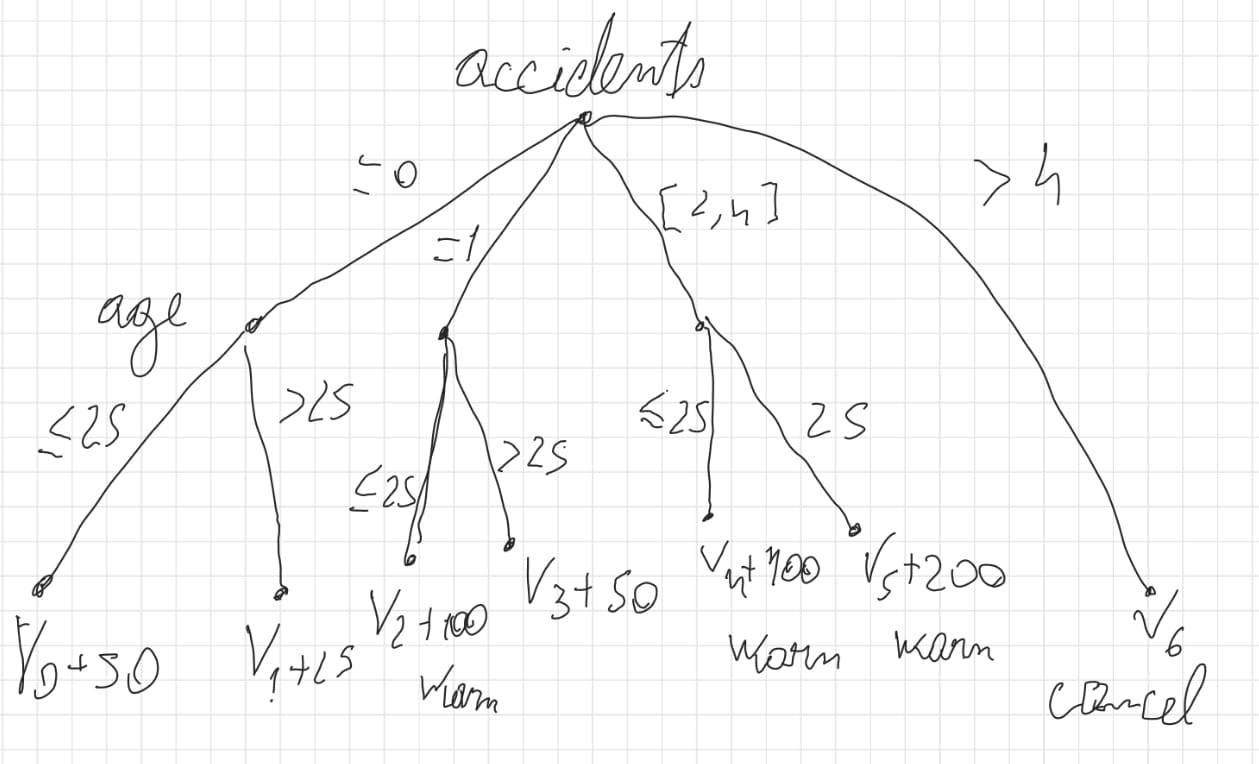 accidents
=0
=1
[2,4]
>4
age
≤25
>25
≤25
>25
≤25
25
V0+50
V1+25
V2+100
warn
V3+50
V4+400
warn
V5+200
warn
V6
cancel